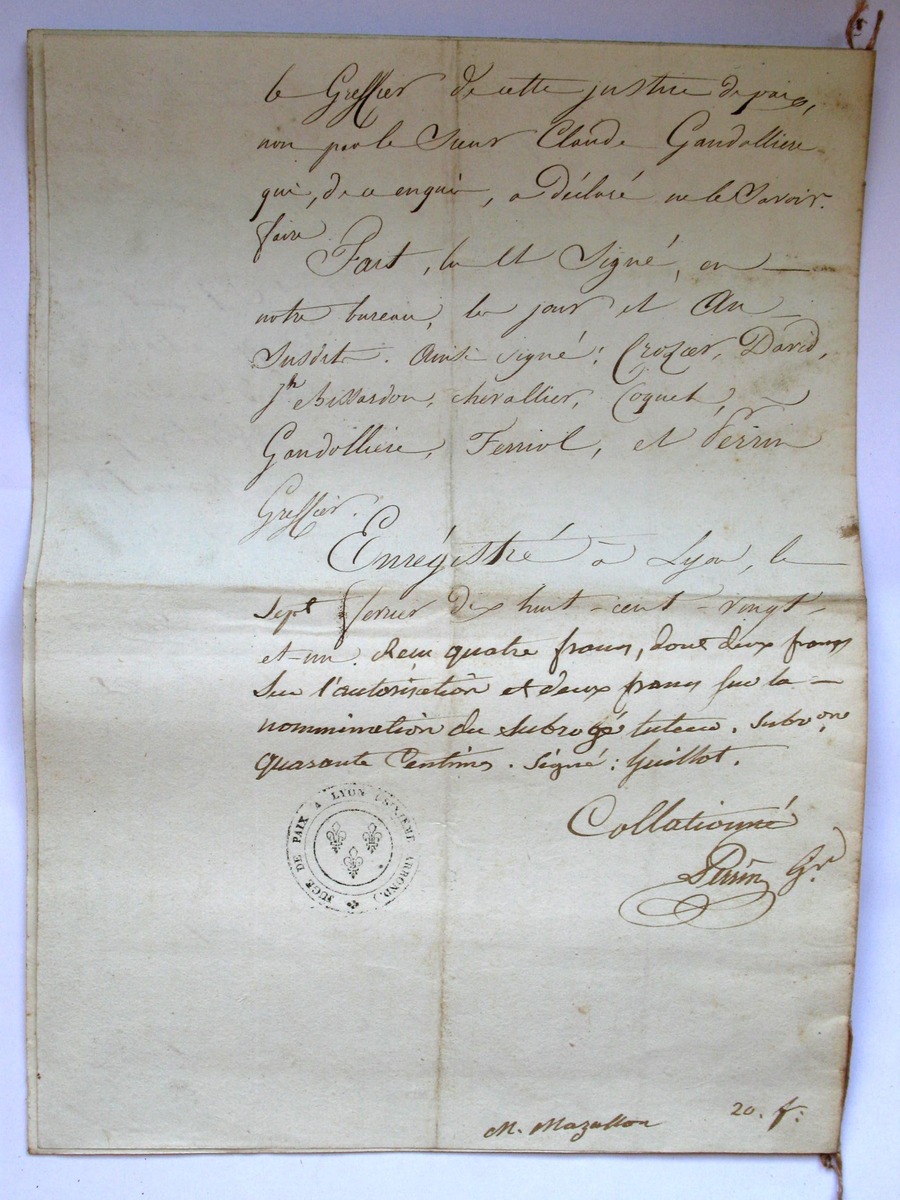 le Greffier de cette justice de paix,
non par le sieur Claude Gandolliere
qui, de ce enquis, a déclaré ne le savoir
faire
Fait, lu et signé, en
notre bureau, les jour et an
susdits. Ainsi signé: Crozier, David,
Jh Bissardon, chevallier, Coquet,
Gandolliere, Ferriol, et Perrin
Greffier.
Enrégistré à Lyon, le
sept fevrier dix huit-cent-vingt-
et-un. Reçu quatre francs, dont deux francs
sur l'autorisation et deux francs sur la
nommination du subrogé tuteur. Subvon
quarante Centimes. Signé: Guillot.
Collationné
Perrin Gr.
JUGE DE PAIX A LYON ARROND.
M. Mazallon
20. f: